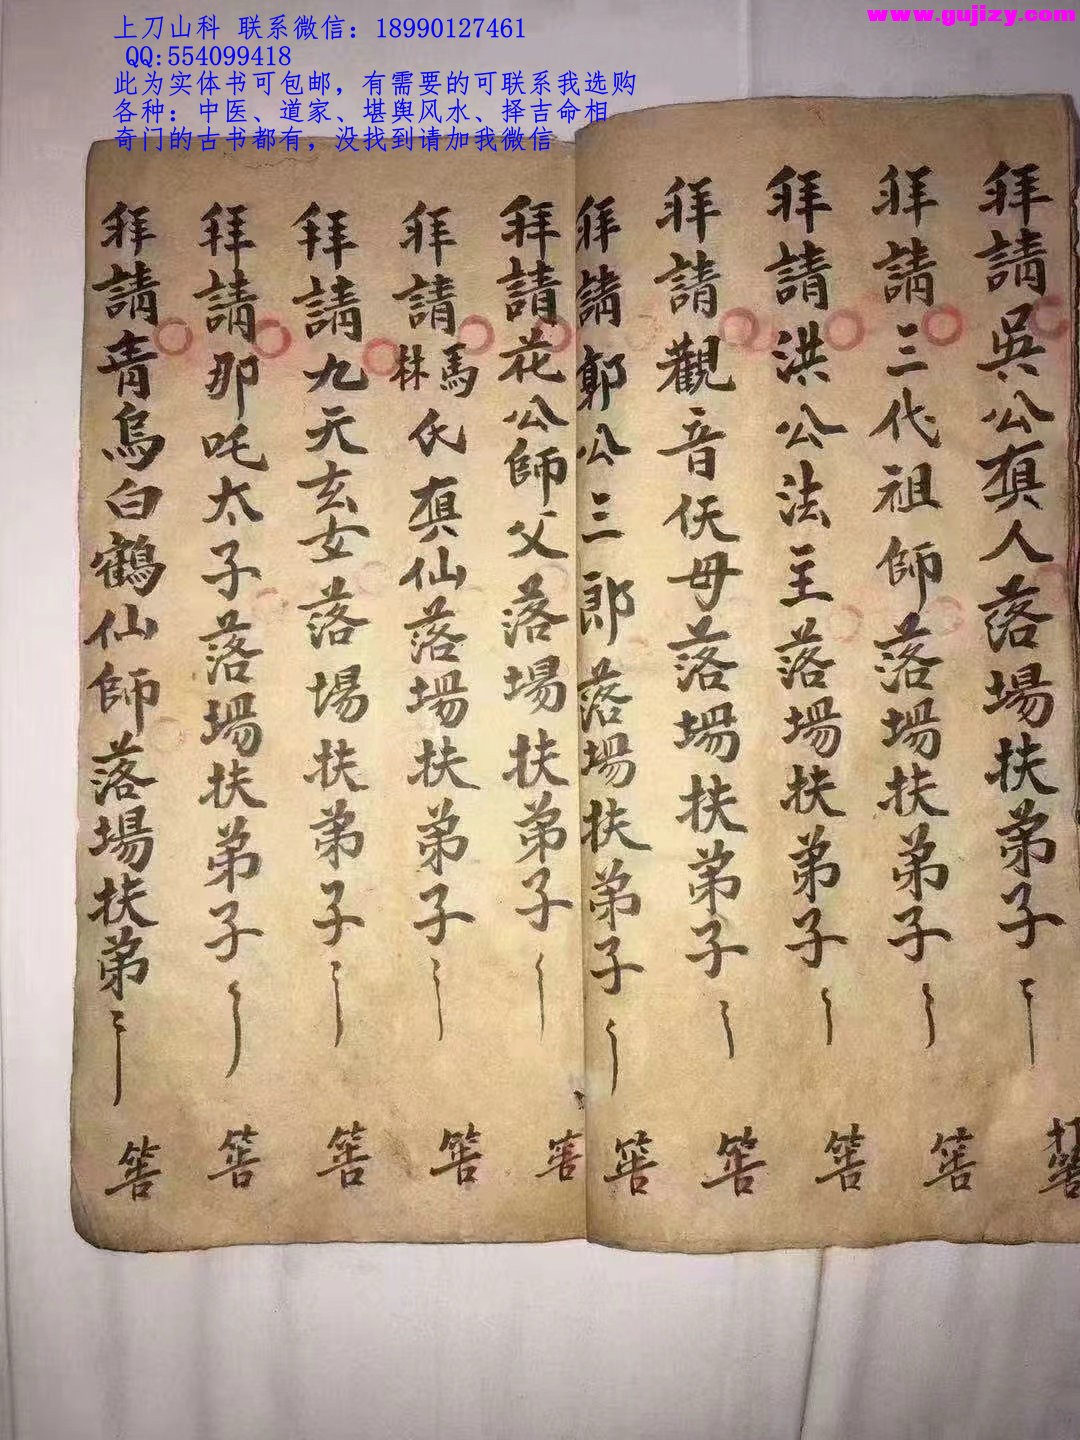 www.gujizy.com
上刀山科 联系微信：18990127461
QQ:554099418
此为实体书可包邮，有需要的可联系我选购
各种：中医、道家、堪舆风水、择吉命相
奇门的古书都有，没找到请加我微信
拜請吳公真人落場扶弟子 打筶
拜請三代祖師落場扶弟子 筶
拜請洪公法主落場扶弟子 筶
拜請觀音佛母落場扶弟子 筶
拜請鄭公三郎落場扶弟子 筶
拜請花公師父落場扶弟子 筶
拜請馬林氏真仙落場扶弟子 筶
拜請九天玄女落場扶弟子 筶
拜請那吒太子落場扶弟子 筶
拜請青烏白鶴仙師落場扶弟 筶